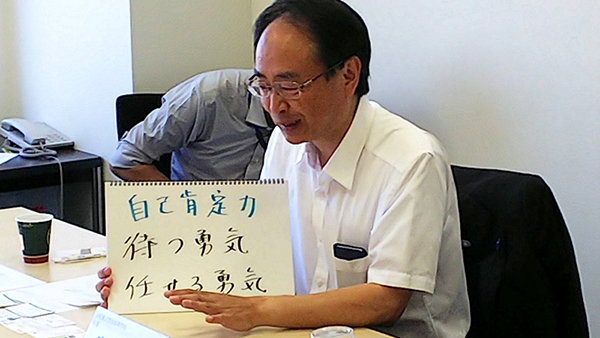 自己肯定力
待つ勇気
任せる勇気